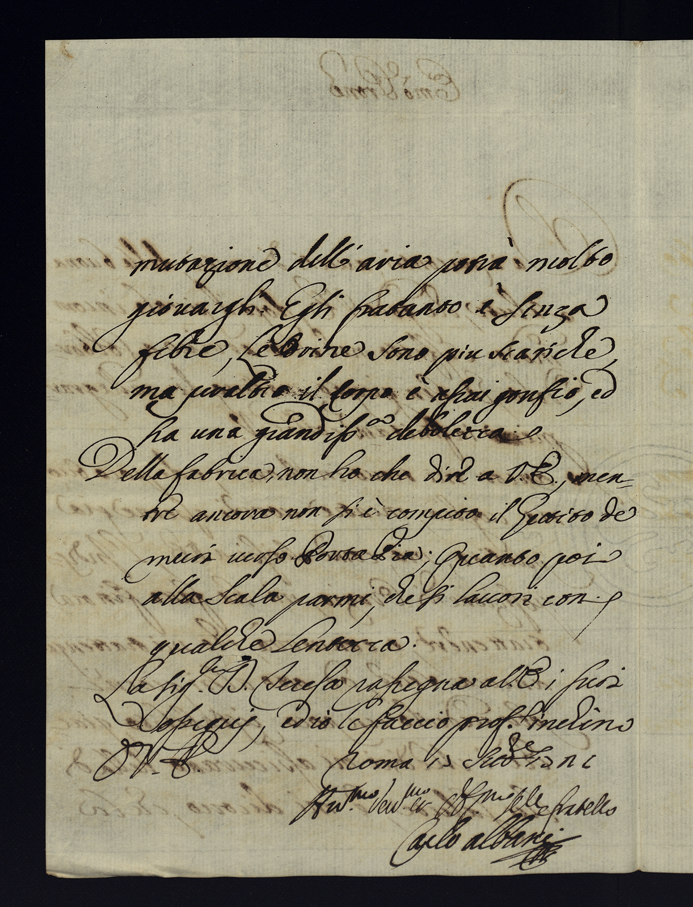 mutazione dell'aria potrà molto
giovargli. Egli frattanto è senza
febre, le Orine sono più scariche,
ma peraltro il Corpo è assai gonfio, ed
ha una grandiss.ª debolezza.
Della fabrica, non ho che dire a V.E., men-
tre ancora non si è compito il Getito de
muri verso Porta Pia; Quanto poi
alla Scala parmi, che si lavori con
qualche lentezza.
La Sig.ra D. Teresa rassegna all'E. i suoi
ossequj, ed io le faccio prof.
V. E. Roma 13
fratello
Carlo Albani